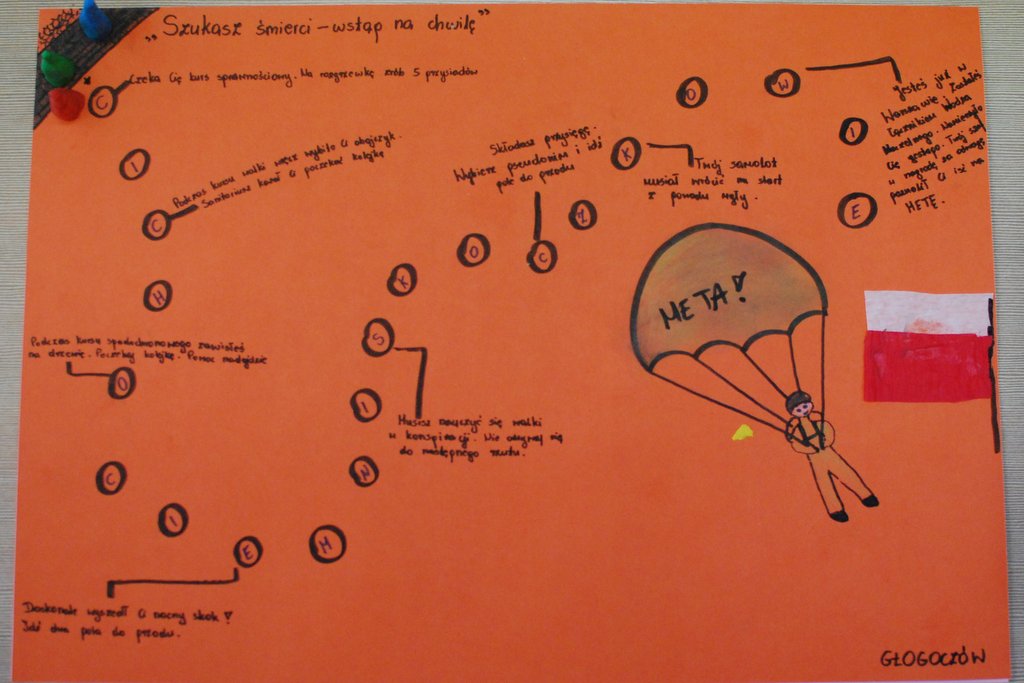 „Szukasz śmierci – wstąp na chwilę”
Czeka Cię kurs sprawnościowy. Na rozgrzewkę zrób 5 przysiadów
C
I
Podczas kursu walki wręcz wybito Ci obojczyk.
Sanitariusz kazał Ci poczekać kolejkę
C
H
Podczas kursu spadochronowego zawisłeś
na drzewie. Poczekaj kolejkę. Pomoc nadejdzie
O
C
I
E
Doskonale wyszedł Ci nocny skok!
Idź dwa pola do przodu.
M
N
I
S
Musisz nauczyć się walki
w konspiracji. Nie
do następnego rzutu.
K
O
C
Składasz przysięgę.
Wybierz pseudonim i idź
pole do przodu
Z
K
Twój samolot
musiał wrócić na start
z powodu mgły.
O
W
Jesteś już w
Warszawie. Zostałeś
łącznikiem Wodza
Naczelnego.
Cię gestapo. Twój szef
w nagrodę za odwagę
pozwolił Ci iść na
METĘ.
I
E
META!
GŁOGOCZÓW